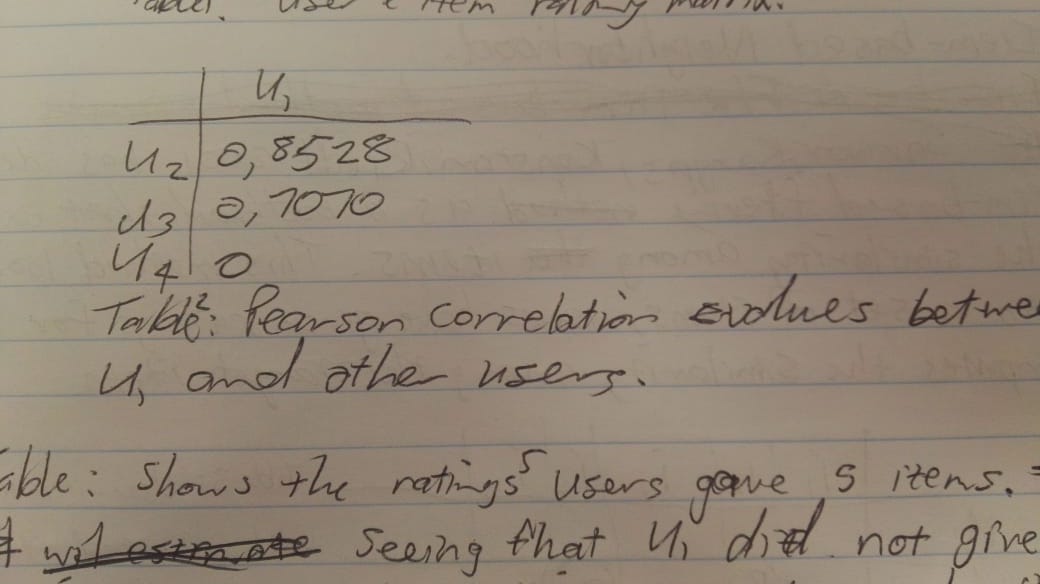 Table1. User & item rating matrix.
U1
U2 0,8528
U3 0,7070
U4 0
Table2: Pearson Correlation values betwe
U1 and other users.
able: Shows the ratings 5 users gave 5 items.
seeing that U1 did not give